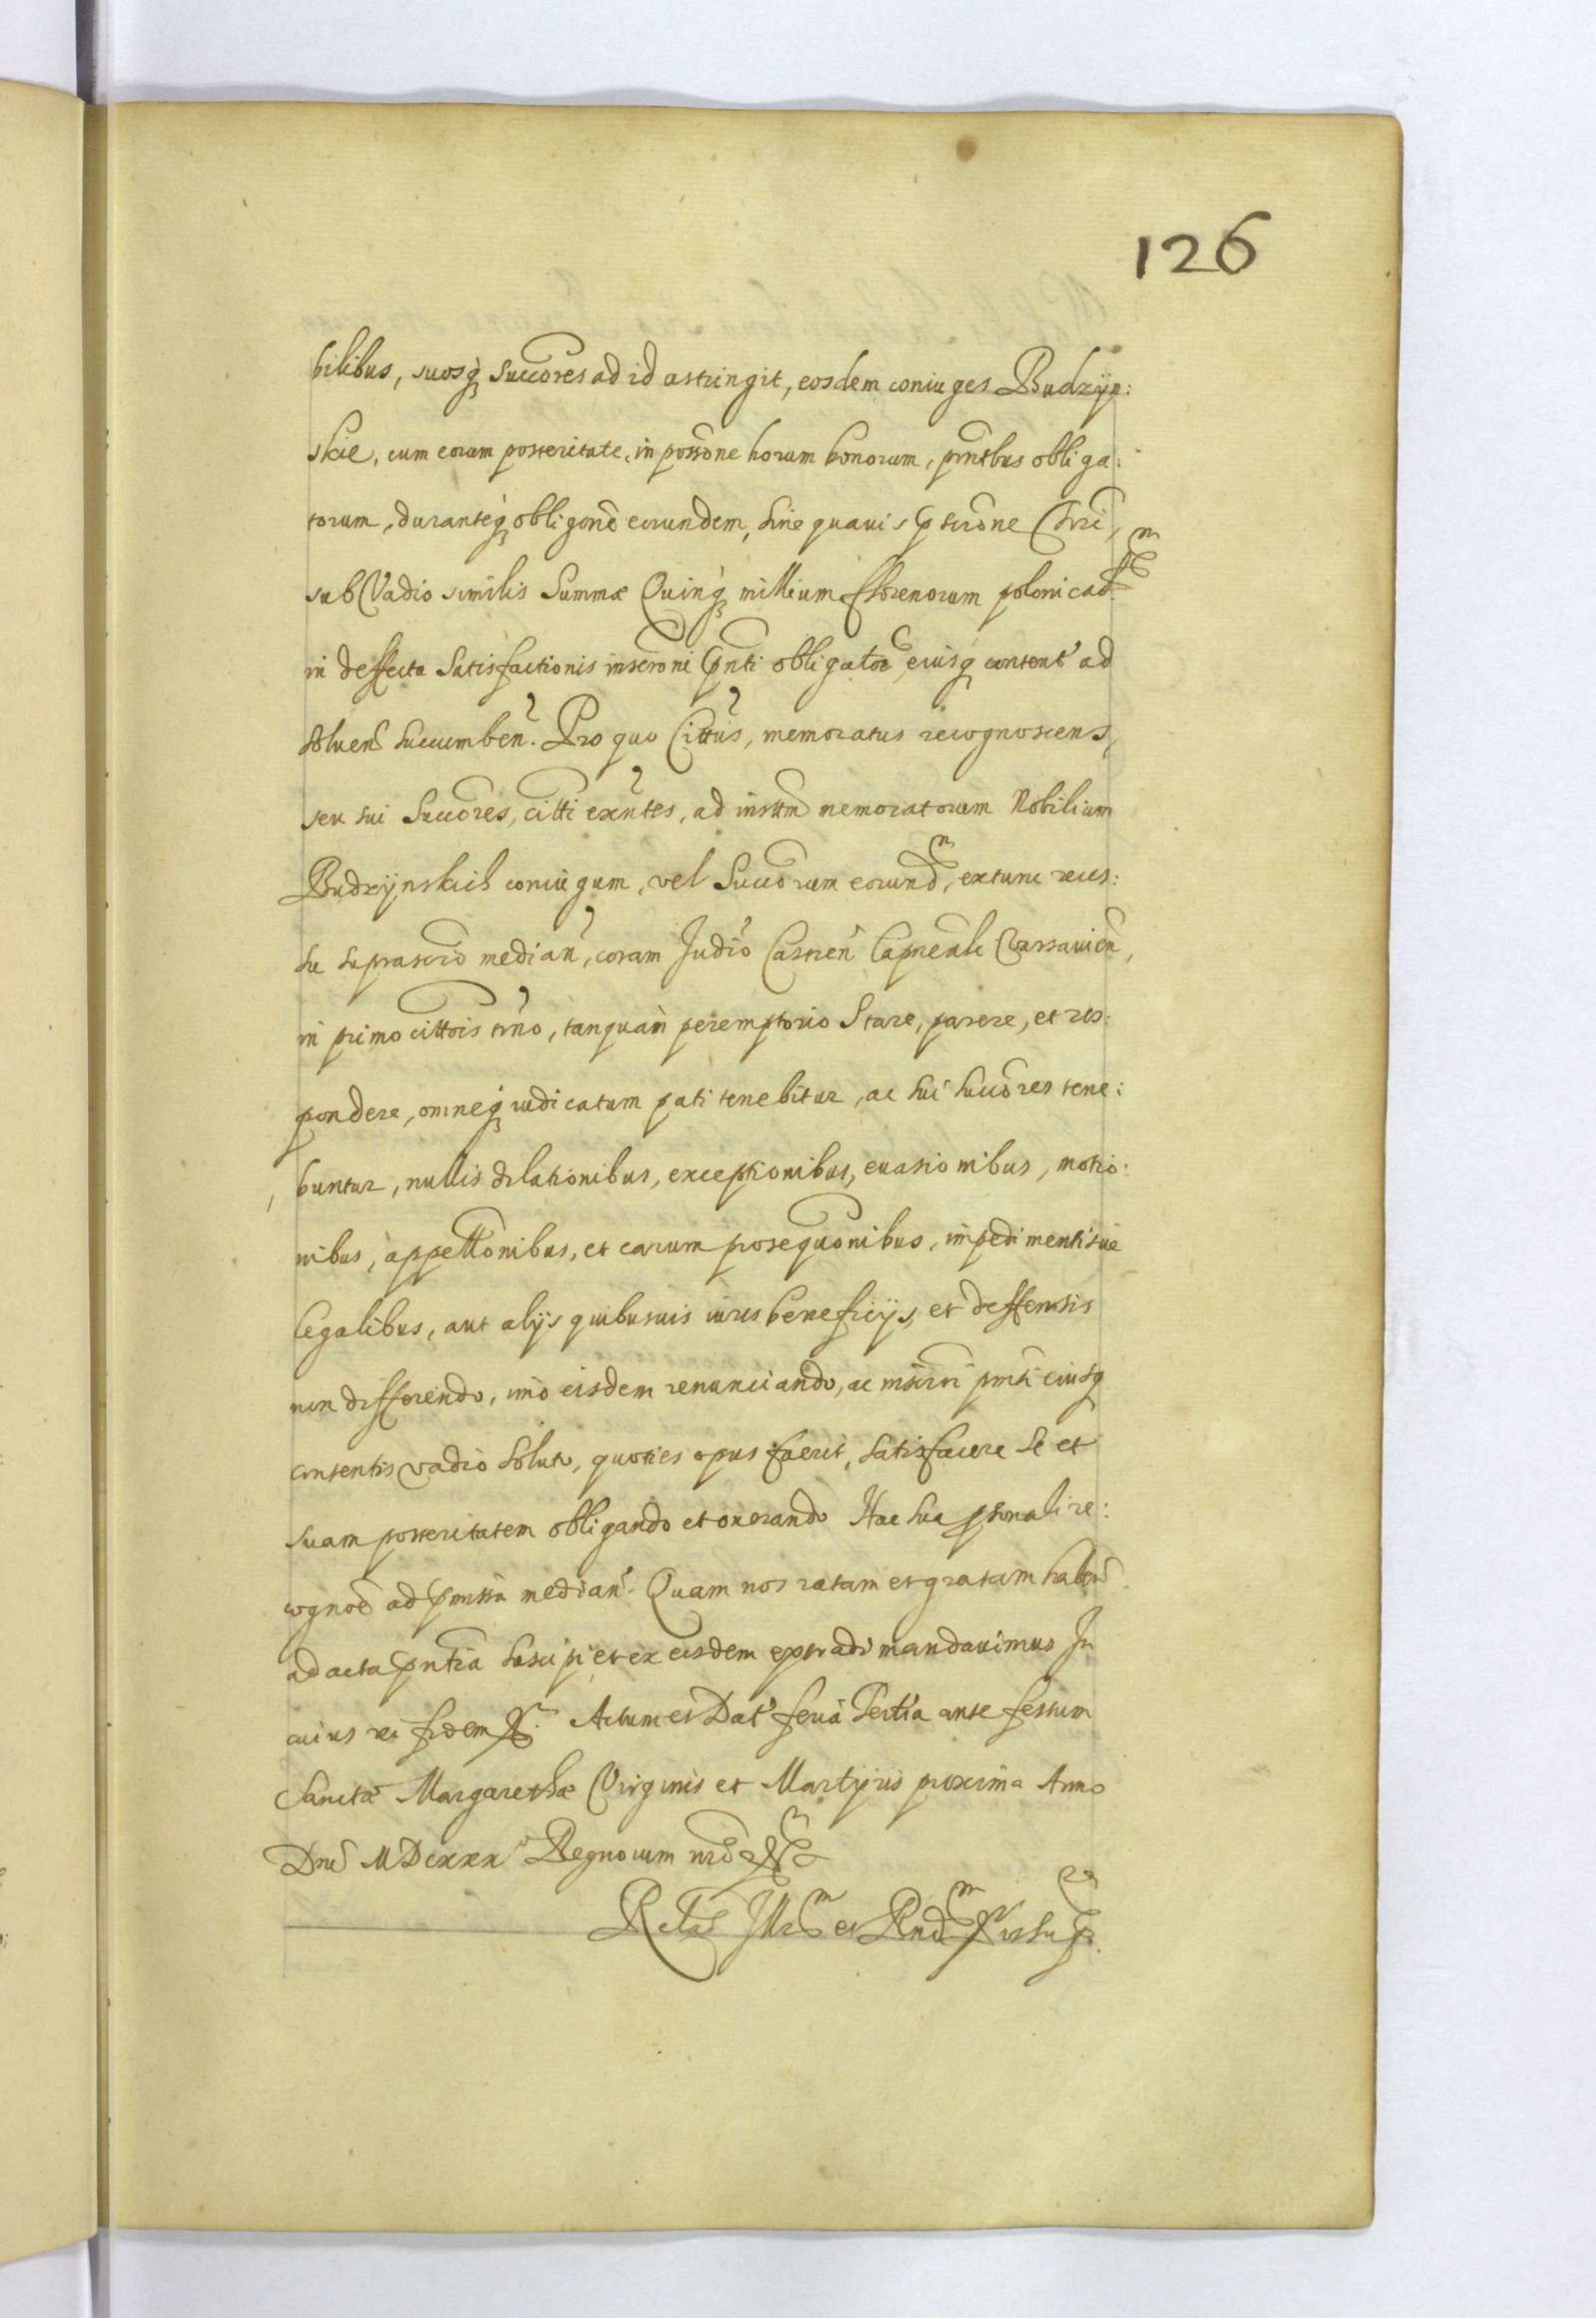 126
bilibus, suosq₃ Succores ad id astringit, eosdem coniuges Budzyn:
skie, cum eorum posteritate, in possone horum bonorum, pntibus obliga:
torum, duranteq₃ obligone eorundem, sine quauis pscrone
sub Vadio similis Summæ Quinq₃ millium florenorum polonicaliū
in deffectu Satisfactionis inscroni pnti obligatoe, eiusq₃ content ad
soluen succumben. Pro quo Cittus, memoratus recognoscens,
seu sui Succores, citti exntes, ad instm memoratorum Nobilium
Budzynskich coniugum, vel Succorum eorund, extunc reces:
su suprascro median, coram Judio Castren Capneali Varsauien,
in primo cittois tmno, tanquam peremptorio Stare, parere, et res:
pondere, omneq₃ iudicatum pati tenebitur, ac sui succores tene:
buntur, nullis dilationibus, exceptionibus, euasionibus, motio:
nibus, appellonibus, et earum prosequonibus, impedimentisue
legalibus, aut alijs quibusuis iuris beneficijs, et deffensis
non differendo, imo eisdem renunciando, ac inscroni pnti eiusq₃
contentis vadio soluto, quoties opus fuerit, satisfacere se et
suam posteritatem obligando et onerando Hac sua psonali re:
cognoe ad pmissa median. Quam nos ratam et gratam haben
ad acta pntia suscipi et ex eisdem extradi mandauimus In
cuius rei fidem &. Actum et Dat feria Tertia ante festum
Sanctæ Margarethæ Virginis et Martyris proxima Anno
Dni MDCXXX Regnorum nrō &
Relao Illr et Rnd